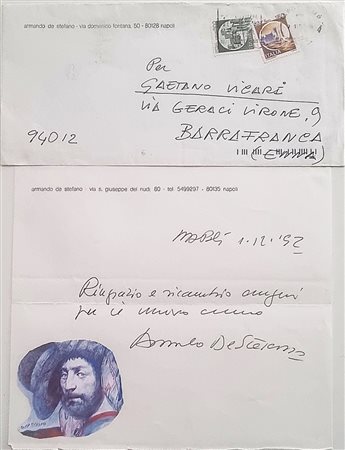 armando de stefano - via domenico fontana, 50 - 80128 napoli
Per
GAETANO VICARI
VIA GERACI VIRONE, 9
94012
BARRAFRANCA
(ENNA)
armando de stefano - via s. giuseppe dei nudi 80 - tel. 5499297 - 80135 napoli
Napoli 1.12.'92
Ringrazio e ricambio auguri
per il nuovo anno
Armando De Stefano